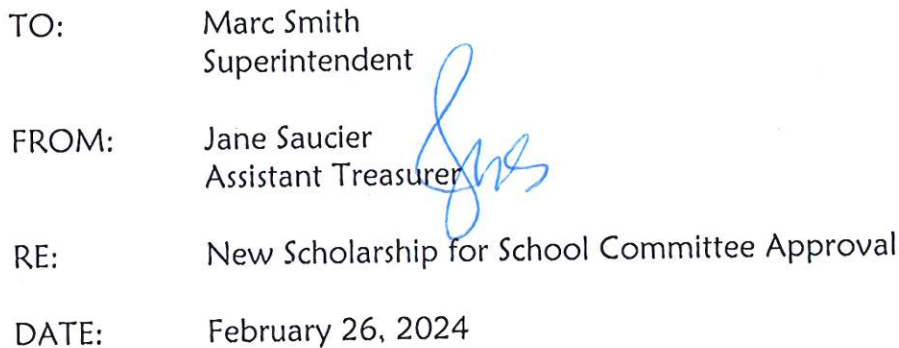 TO: Marc Smith
Superintendent
FROM: Jane Saucier
Assistant Treasurer
RE: New Scholarship for School Committee Approval
DATE: February 26, 2024